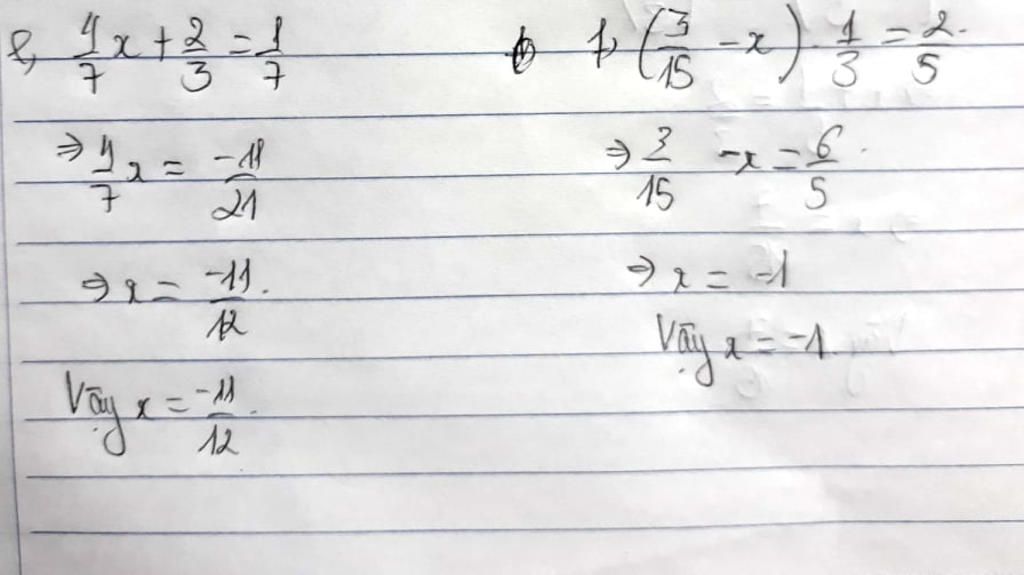 e, 4/7 x + 2/3 = 1/7
⇒ 4/7 x = -11/21
⇒ x = -11/12.
Vậy x = -11/12.
f, (3/15 - x) . 1/3 = 2/5.
⇒ 3/15 - x = 6/5.
⇒ x = -1
Vậy x = -1.